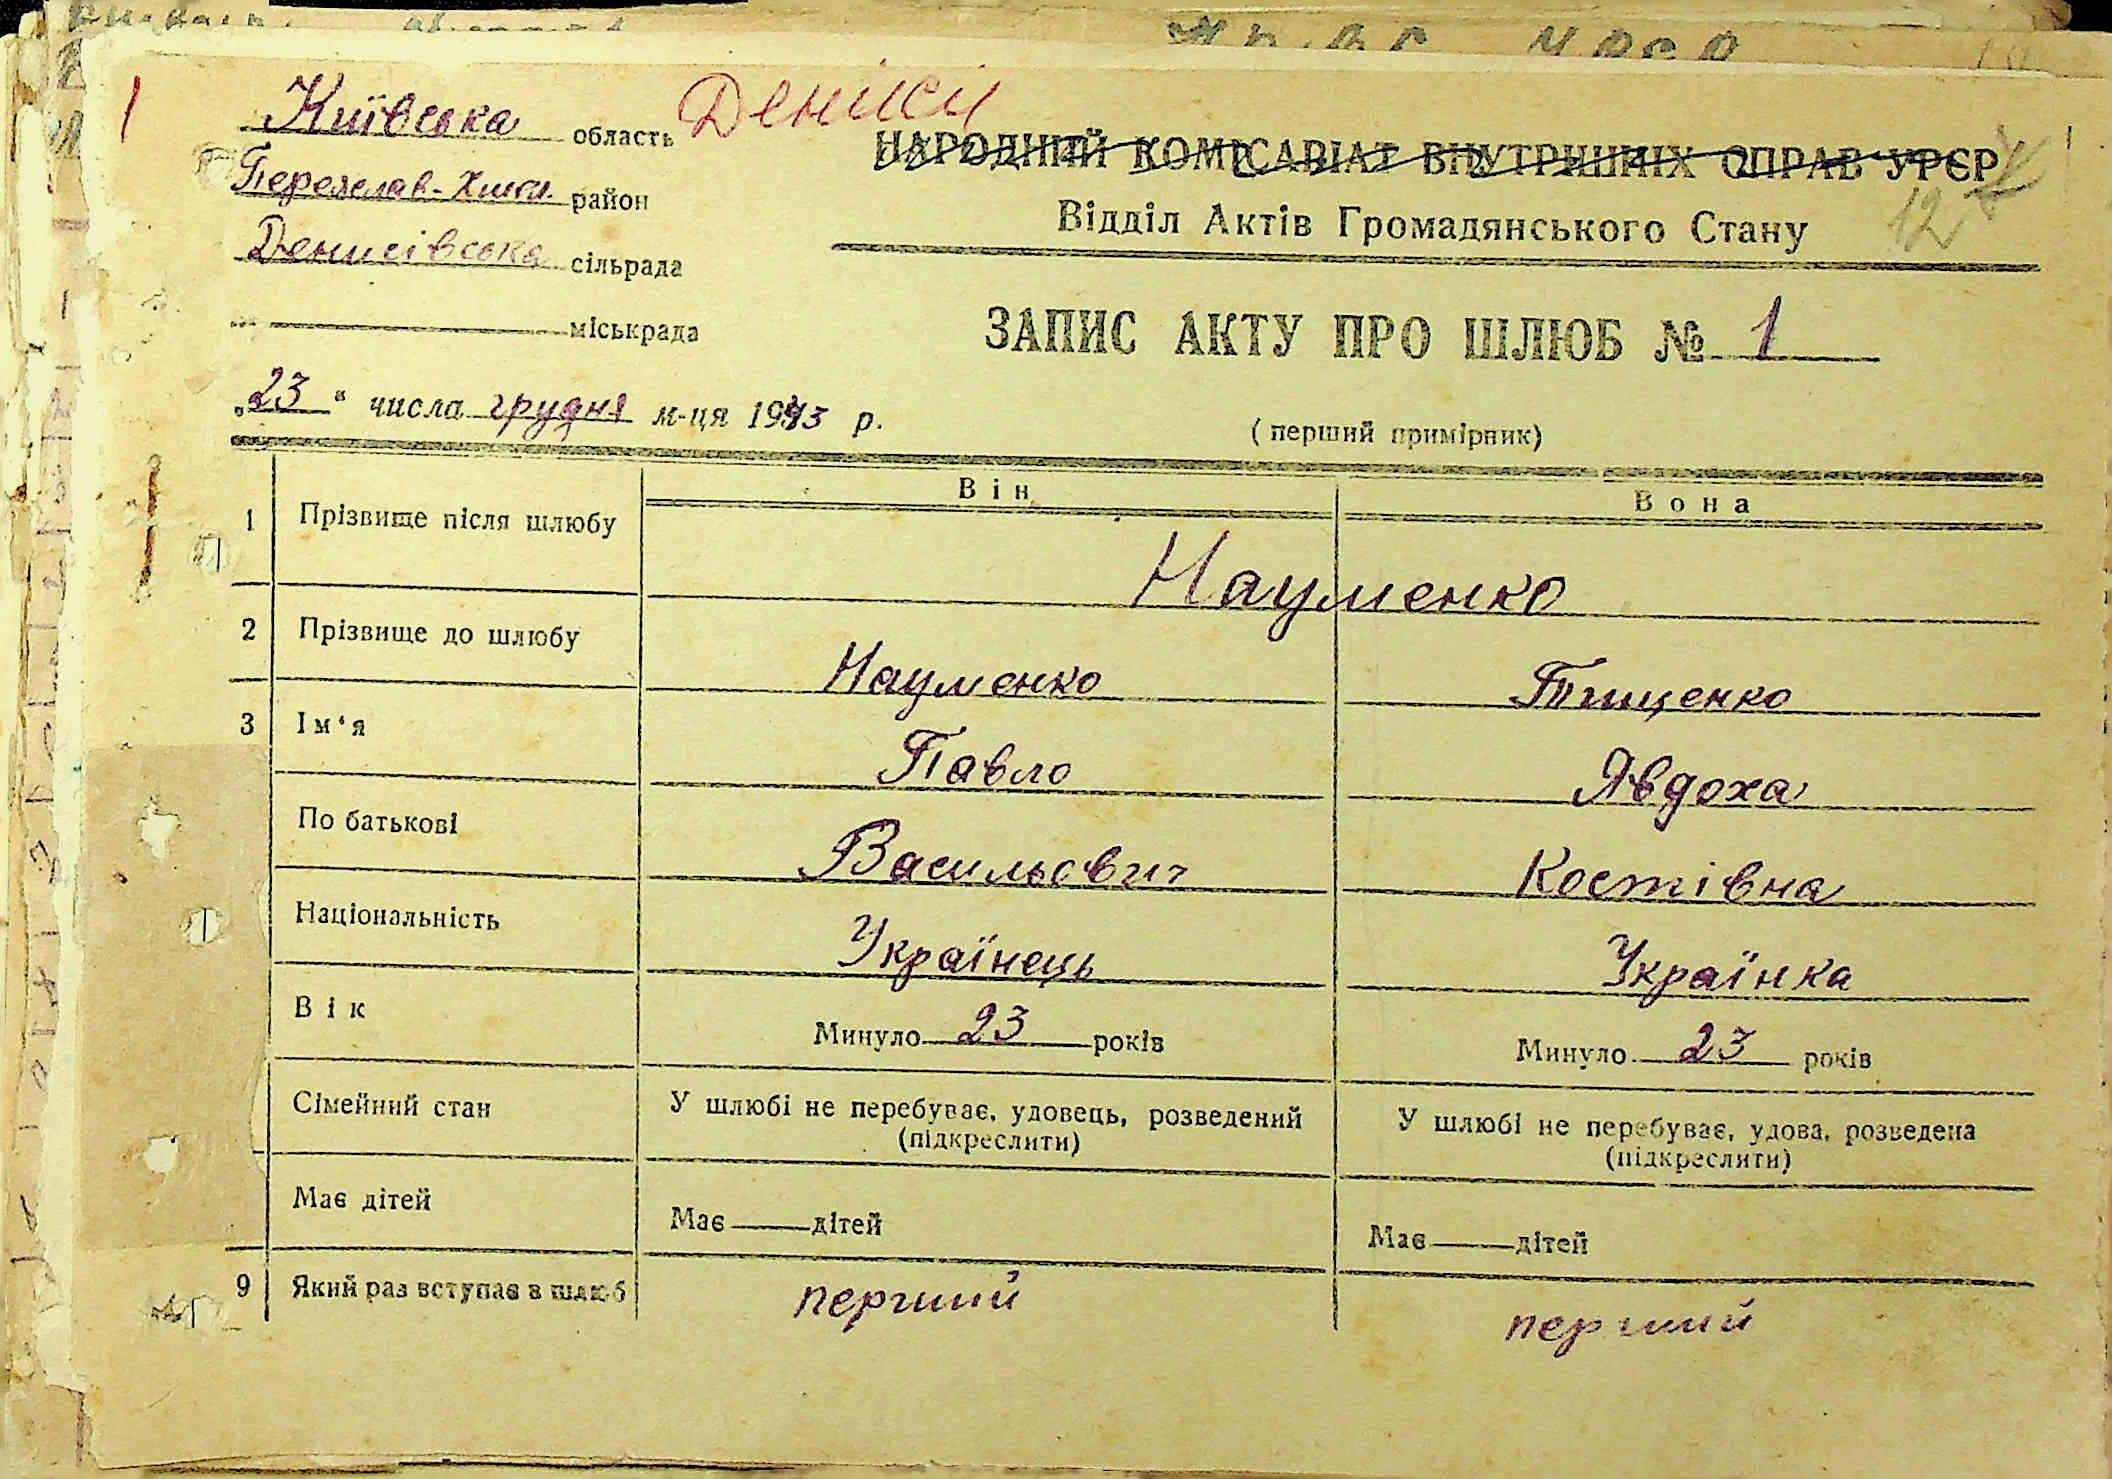 1
Київська область Дениси
Переяслав-Хмел. район
Денисівська сільрада
міськрада
НАРОДНИЙ КОМІСАРІАТ ВНУТРІШНІХ СПРАВ УРСР
12
Відділ Актів Громадянського Стану
ЗАПИС АКТУ ПРО ШЛЮБ № 1
„23“ числа грудня м-ця 1943 р.
(перший примірник)
Він Вона
1 Прізвище після шлюбу Науменко
2 Прізвище до шлюбу Науменко Тищенко
3 Ім‘я Павло Явдоха
По батькові Васильович Костівна
Національність Українець Українка
Вік Минуло 23 років Минуло 23 років
Сімейний стан У шлюбі не перебуває, удовець, розведений У шлюбі не перебуває, удова, розведена
(підкреслити) (підкреслити)
Має дітей Має — дітей Має — дітей
9 Який раз вступає в шлюб перший перший